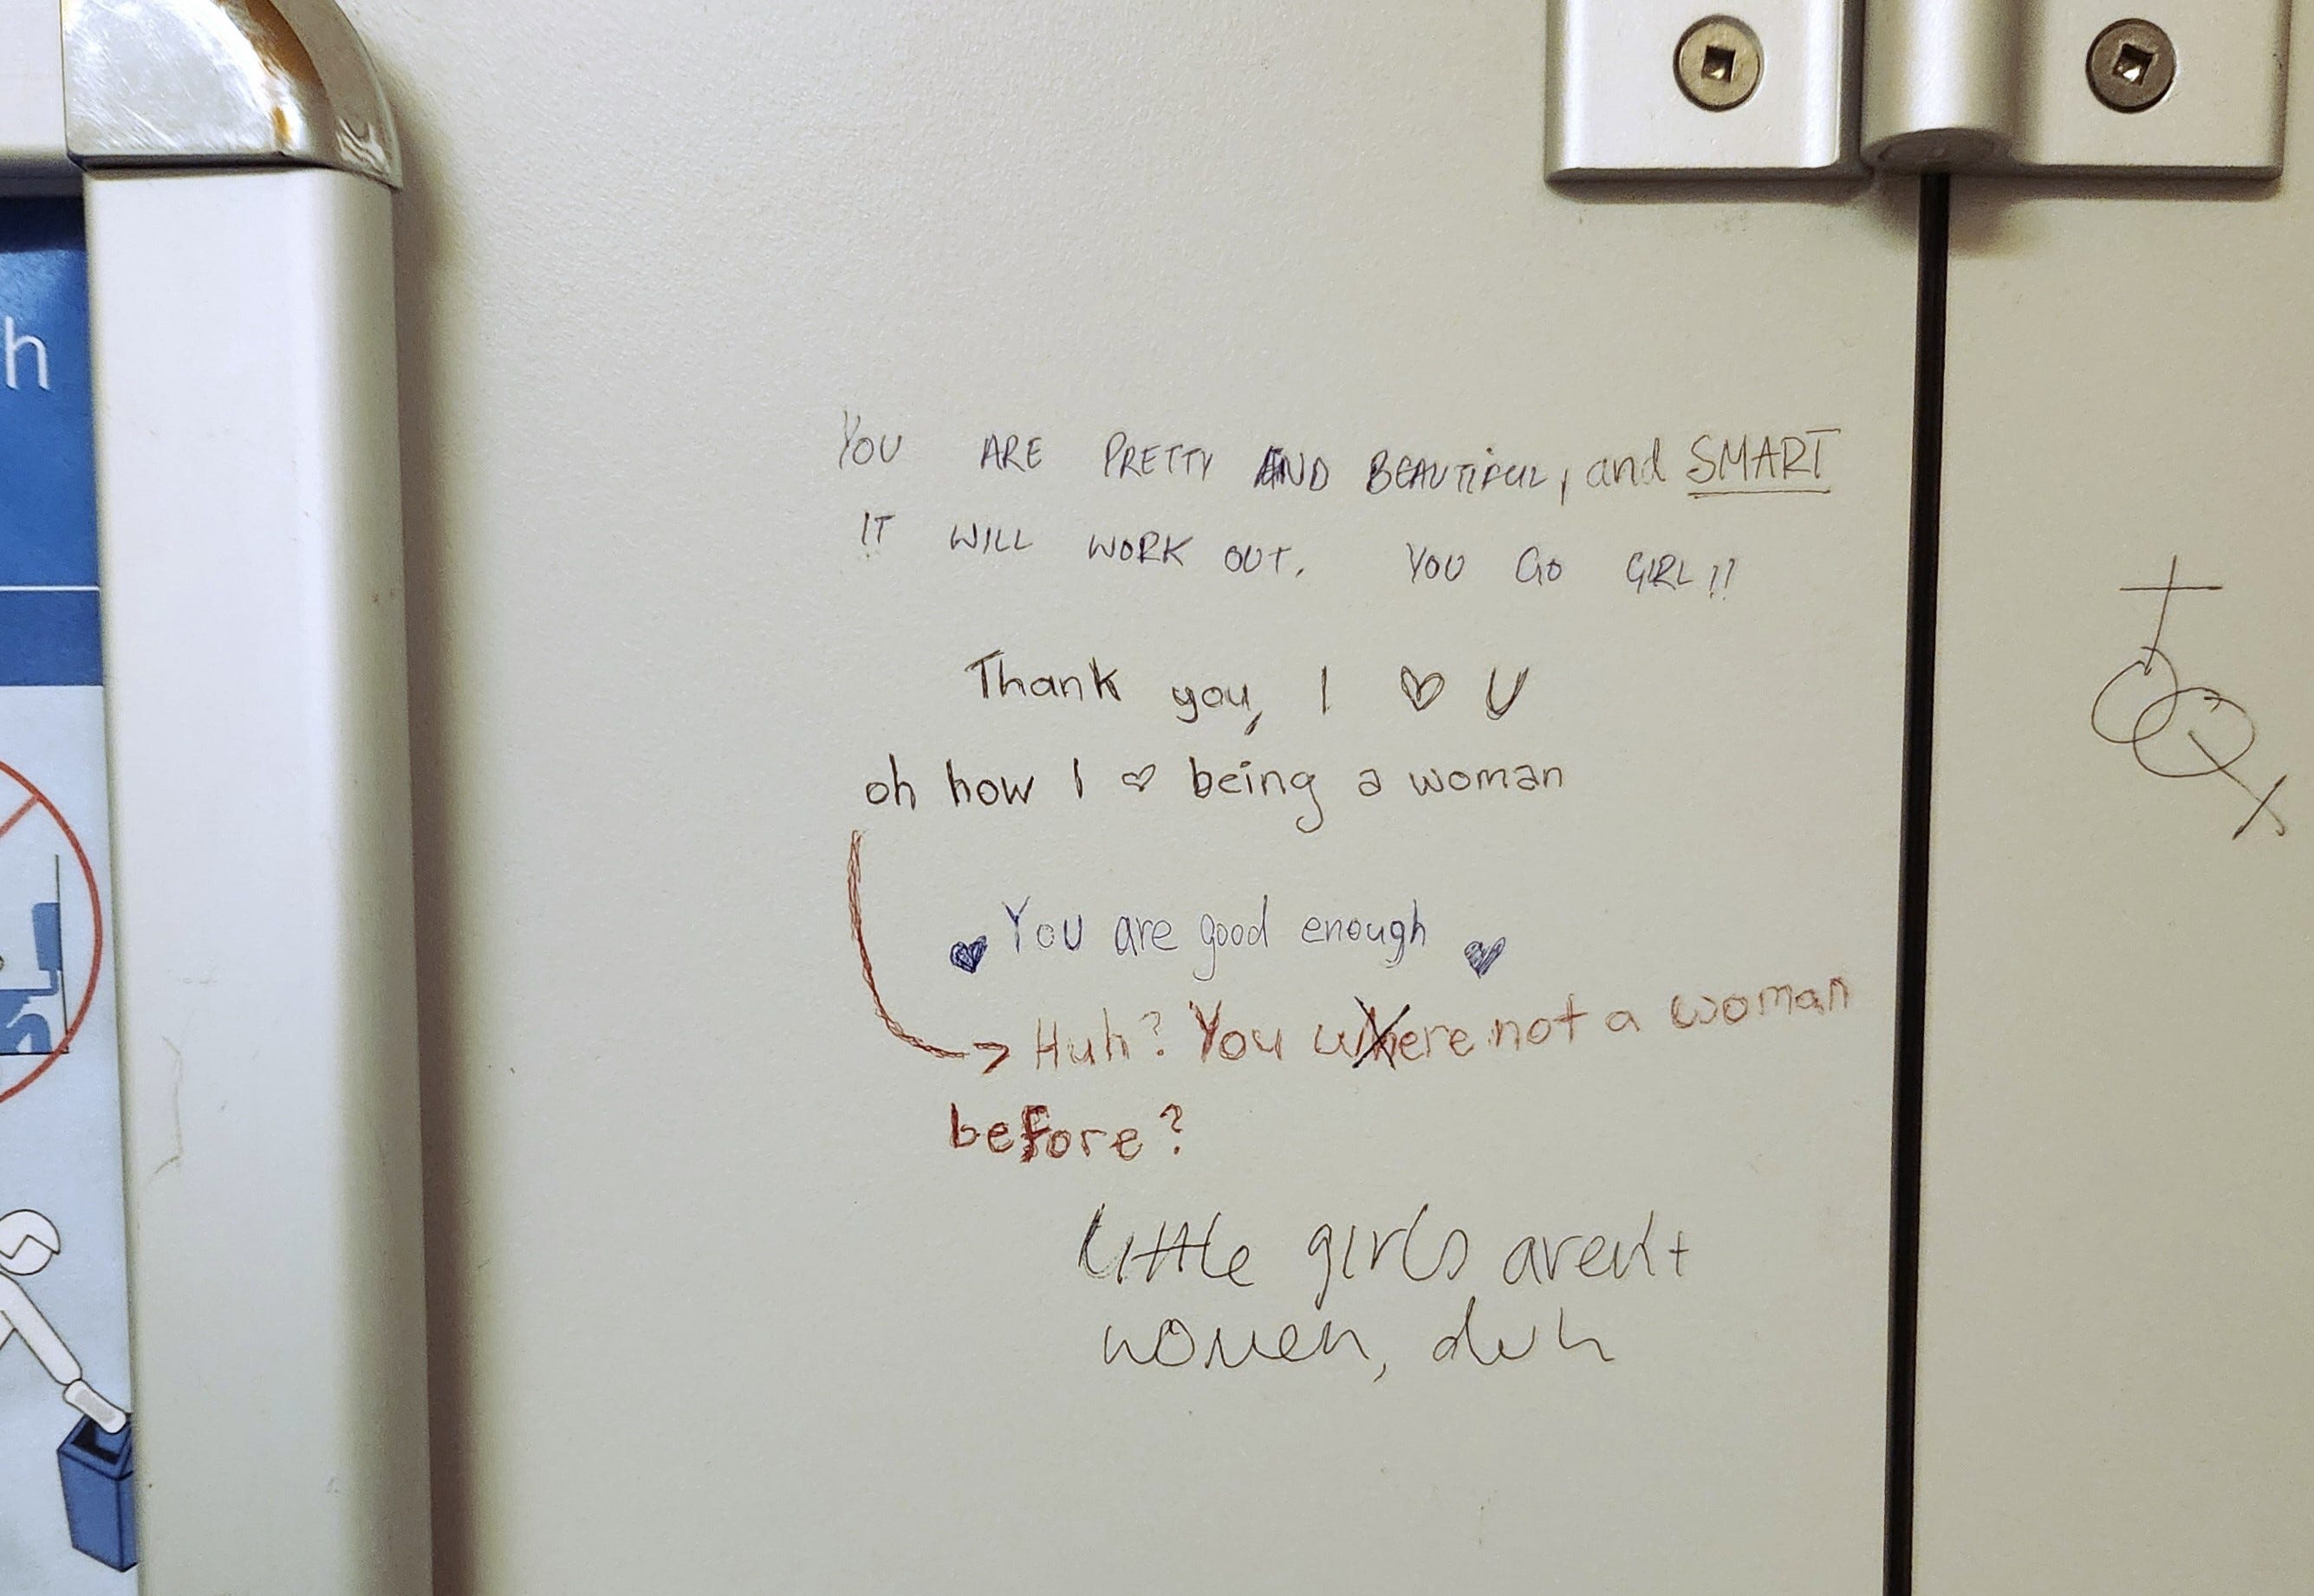 h
YOU ARE PRETTY AND BEAUTIFUL, and SMART
IT WILL WORK OUT. YOU GO GIRL!!
Thank you, I ♡ U
oh how I ♡ being a woman
♥ You are good enough ♥
→ Huh? You where not a woman
before?
Little girls aren't
women, duh